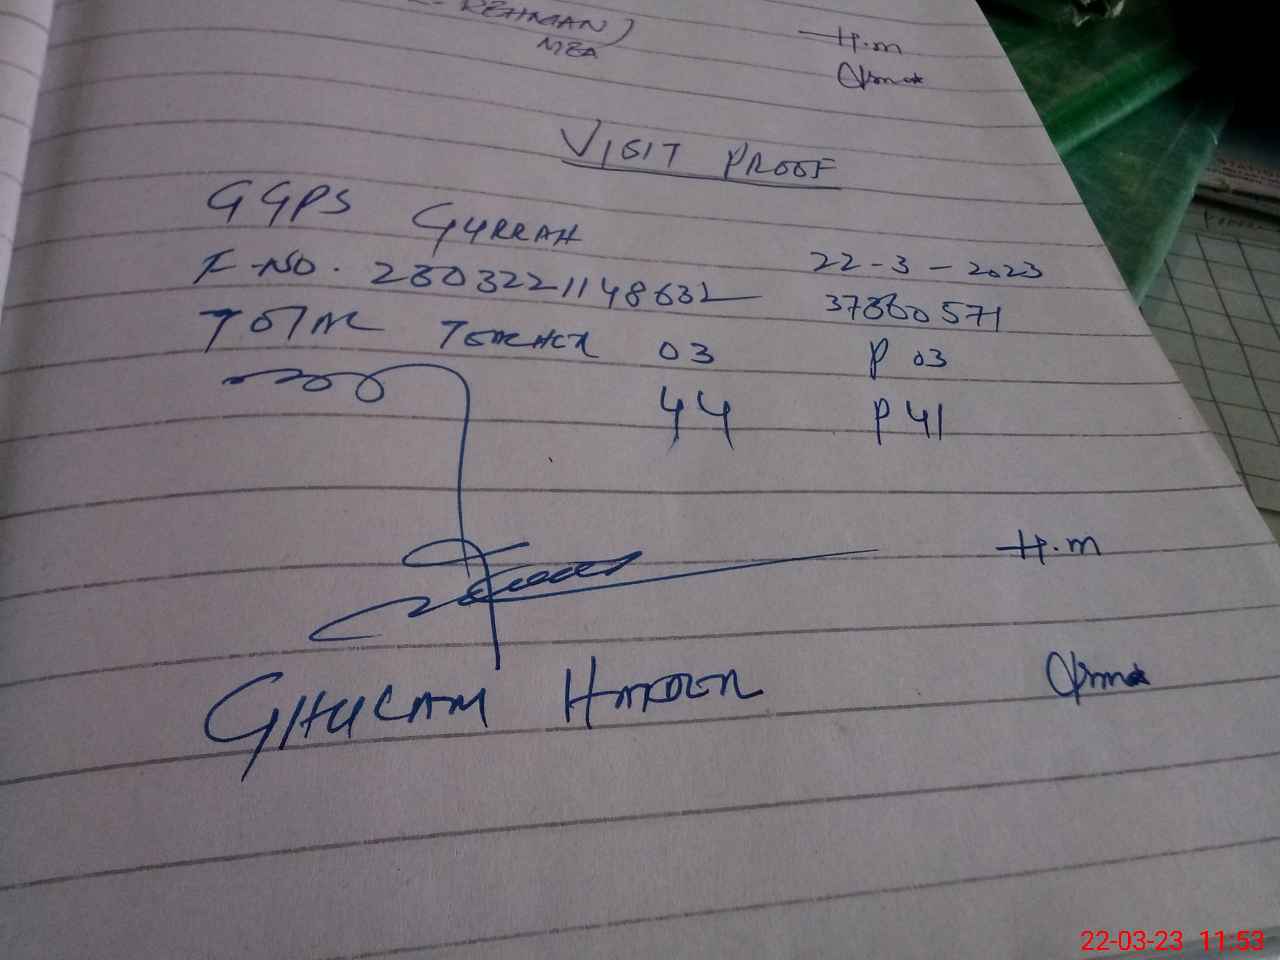 REHMAN)
MEA
H.m
VISIT PROOF
GGPS GURRAH
22-3-2023
F-NO. 2303221148632
37360571
TOTAL TEACHER 03 P 03
44 P 41
H.m
GHULAM HAIDER
22-03-23 11:53